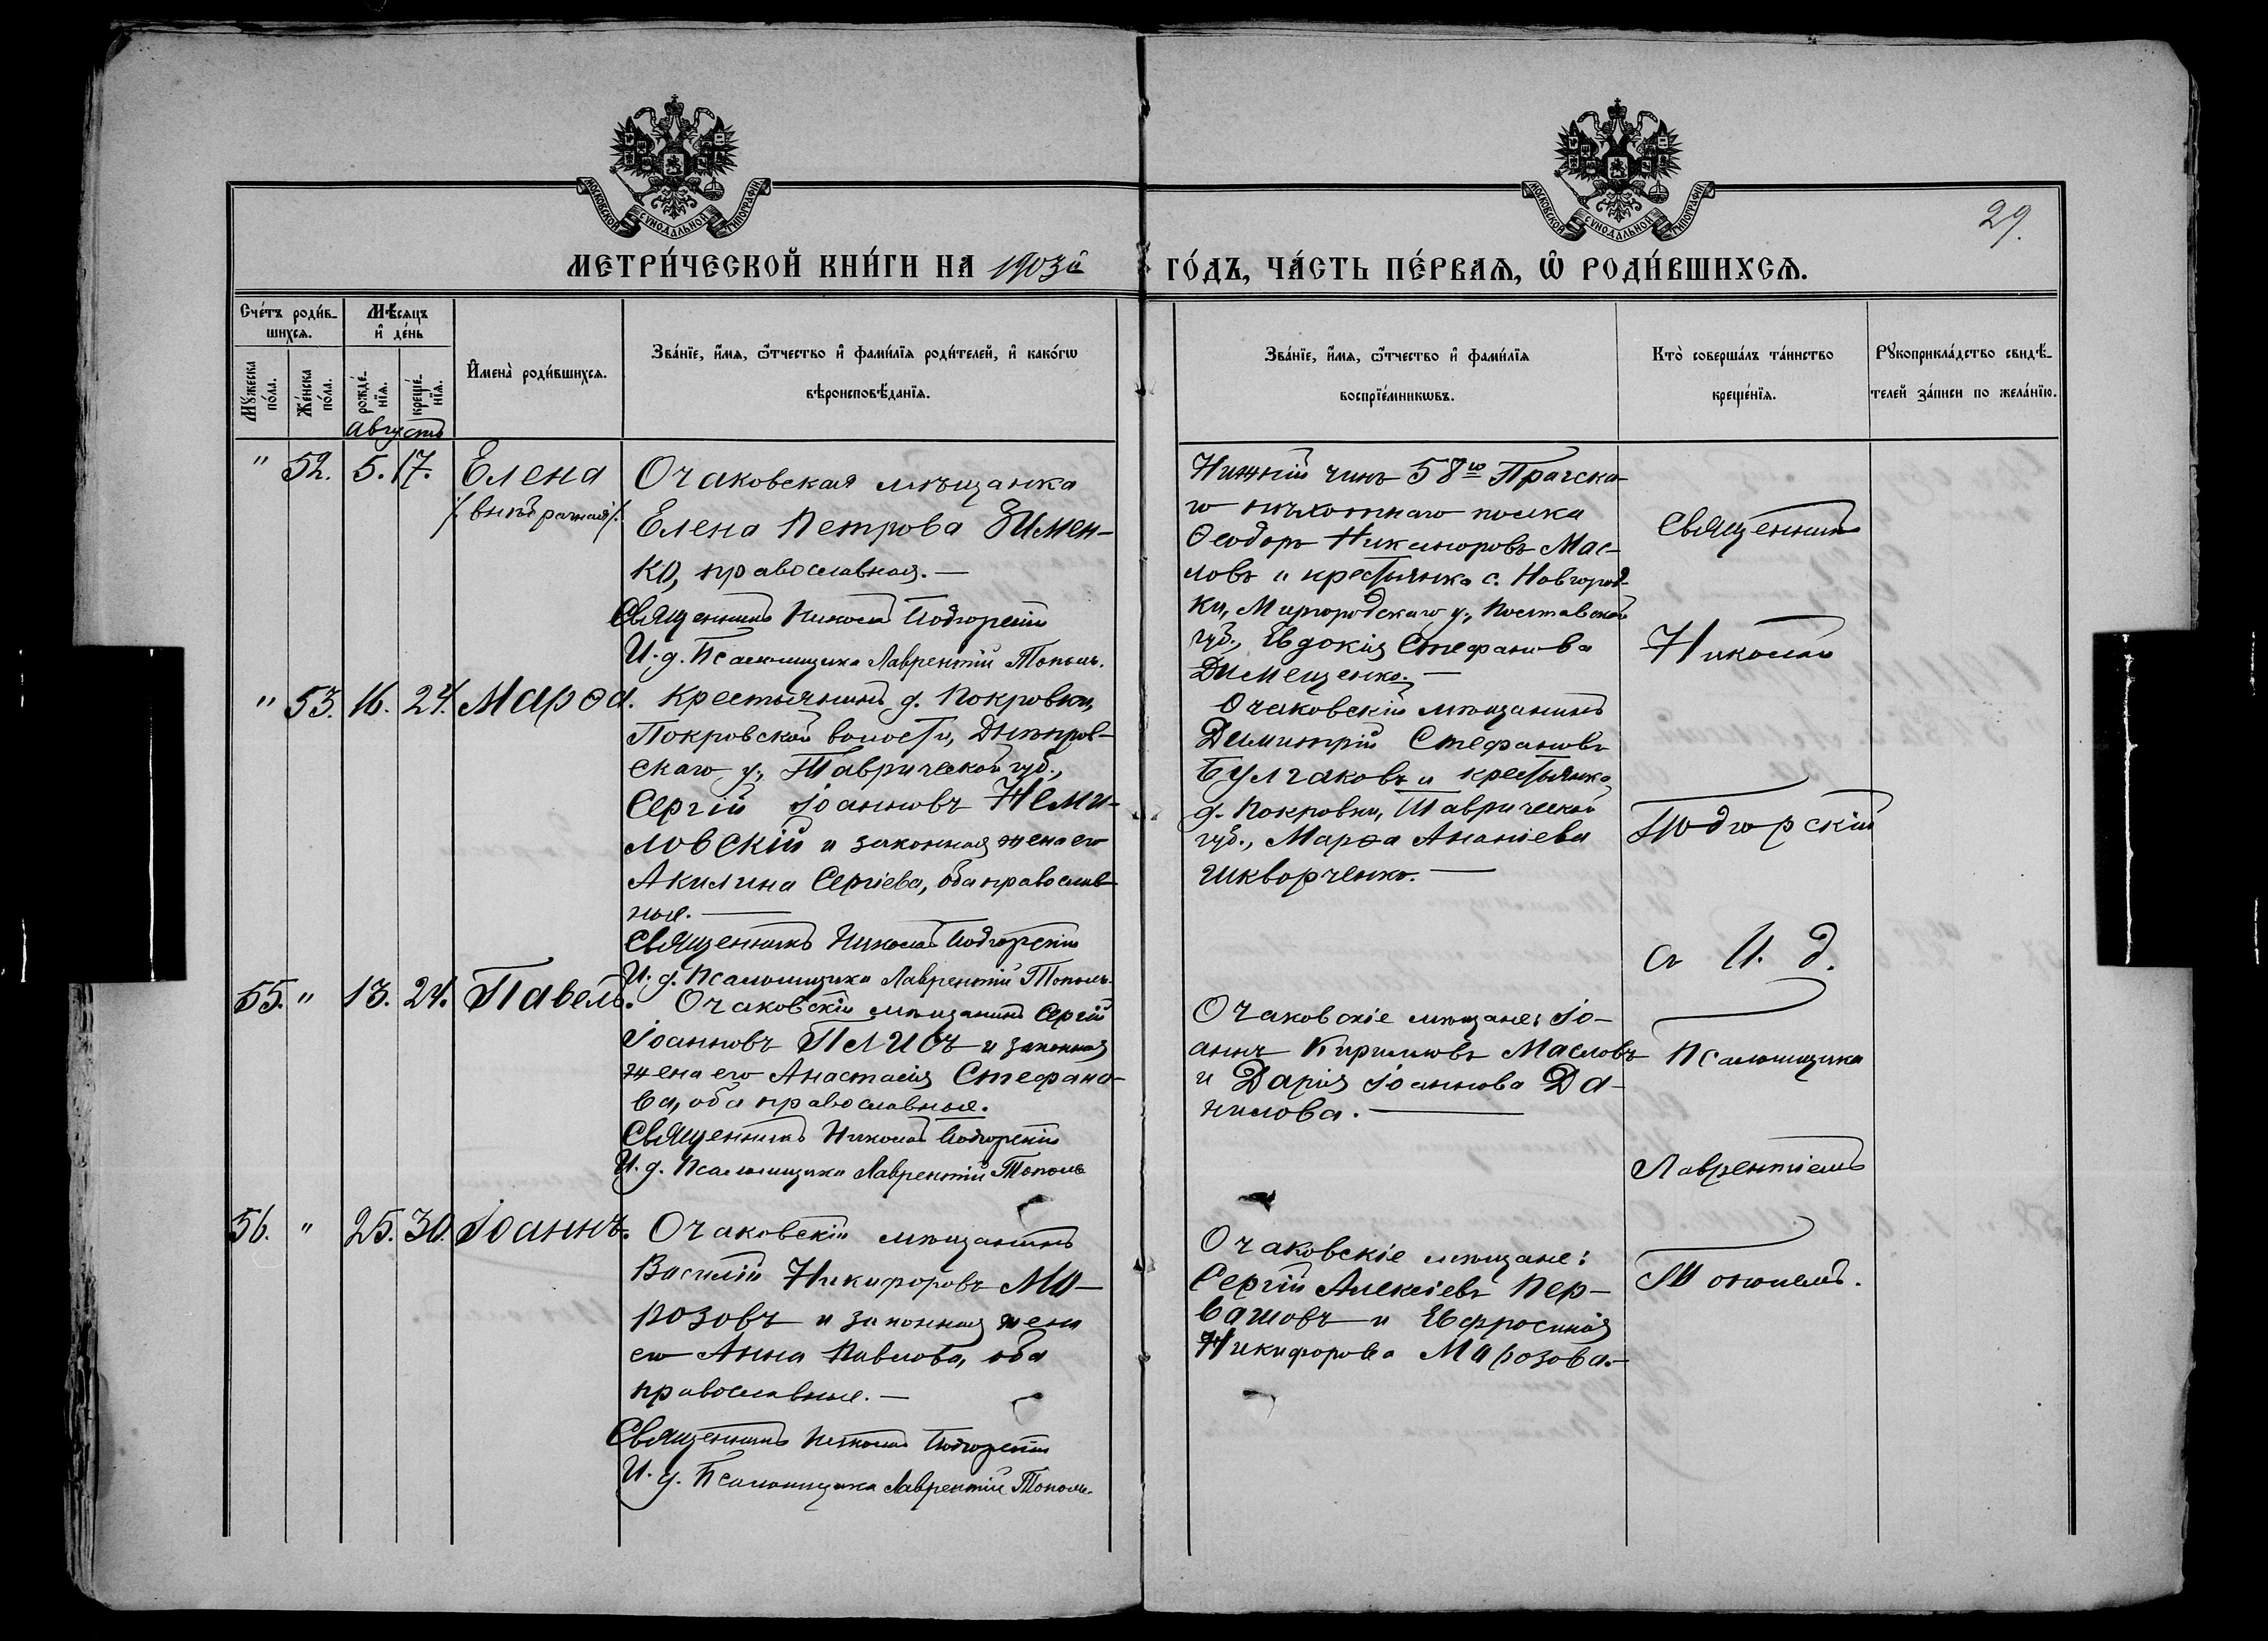 МОСКОВСКОЙ СѴНОДАЛЬНОЙ ТИПОГРАФІИ
МОСКОВСКОЙ СѴНОДАЛЬНОЙ ТИПОГРАФІИ
29.
МЕТРИ́ЧЕСКОЙ КНИ́ГИ НА 1903й
ГО́ДЪ, ЧА́СТЬ ПЕ́РВАѦ, Ѡ҆ РОДИ́ВШИХСѦ.
Сче́тъ роди́в-
шихсѧ.
Мѣ́сѧцъ
и҆ де́нь
Мꙋ́жеска по́ла.
Же́нска по́ла.
рожде́-
нїѧ.
креще́-
нїѧ.
И҆мена̀ роди́вшихсѧ.
Зва́нїе, и҆́мѧ, ѻ҆́тчество и҆ фами́лїѧ роди́телей, и҆ како́гѡ
вѣроисповѣ́данїѧ.
Зва́нїе, и҆́мѧ, ѻ҆́тчество и҆ фами́лїѧ
воспрїе́мникѡвъ.
Кто̀ соверша́лъ та́инство
креще́нїѧ.
Рꙋкоприкла́дство свидѣ́-
телей за́писи по жела́нїю.
Августъ
" 52. 5. 17. Елена
/:внѣбрачная:/
Очаковская мѣщанка
Елена Петрова Зимен-
ко, православная. —
Священникъ Николай Подгорскій
И. д. Псаломщика Лаврентій Тополь.
Нижній чинъ 58го Прагска-
го пѣхотнаго полка
Ѳеодоръ Никаноровъ Мас-
ловъ и крестьянка с. Новгород-
ки, Миргородскаго у., Полтавской
губ., Евдокія Стефанова
Димещенко. —
" 53. 16. 24. Марѳа.
Крестьянинъ д. Покровки,
Покровской волости, Днѣпров-
скаго у., Таврической губ.,
Сергій Іоанновъ Неми-
ловскій и законная жена его
Акилина Сергіева, оба православ-
ные. —
Священникъ Николай Подгорскій
И. д. Псаломщика Лаврентій Тополь.
Очаковскій мѣщанинъ
Димитрій Стефановъ
Булгаковъ и крестьянка
д. Покровки, Таврической
губ., Марѳа Ананіева
Шкворченко. —
55. " 13. 24. Павелъ.
Очаковскій мѣщанинъ Сергій
Іоанновъ Плисъ и законная
жена его Анастасія Стефано-
ва, оба православные.
Священникъ Николай Подгорскій
И. д. Псаломщика Лаврентій Тополь
Очаковскіе мѣщане: Іо-
аннъ Кирилловъ Масловъ
и Дарія Іоаннова Да-
нилова. —
56. " 25. 30. Іоаннъ.
Очаковскій мѣщанинъ
Василій Никифоровъ Мо-
розовъ и законная жена
его Анна Павлова, оба
православные. —
Священникъ Николай Подгорскій
И. д. Псаломщика Лаврентій Тополь.
Очаковскіе мѣщане:
Сергій Алексіевъ Пер-
вашовъ и Евфросинія
Никифорова Марозова. —
Священникъ
Николай
Подгорскій
съ И. д.
Псаломщика
Лаврентіемъ
Тополемъ.